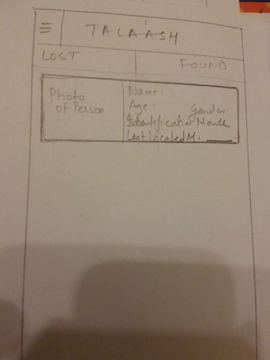 TALAASH
LOST
FOUND
Photo
of Person
Name:
Age: Gender
Identification Mark
Last located At: